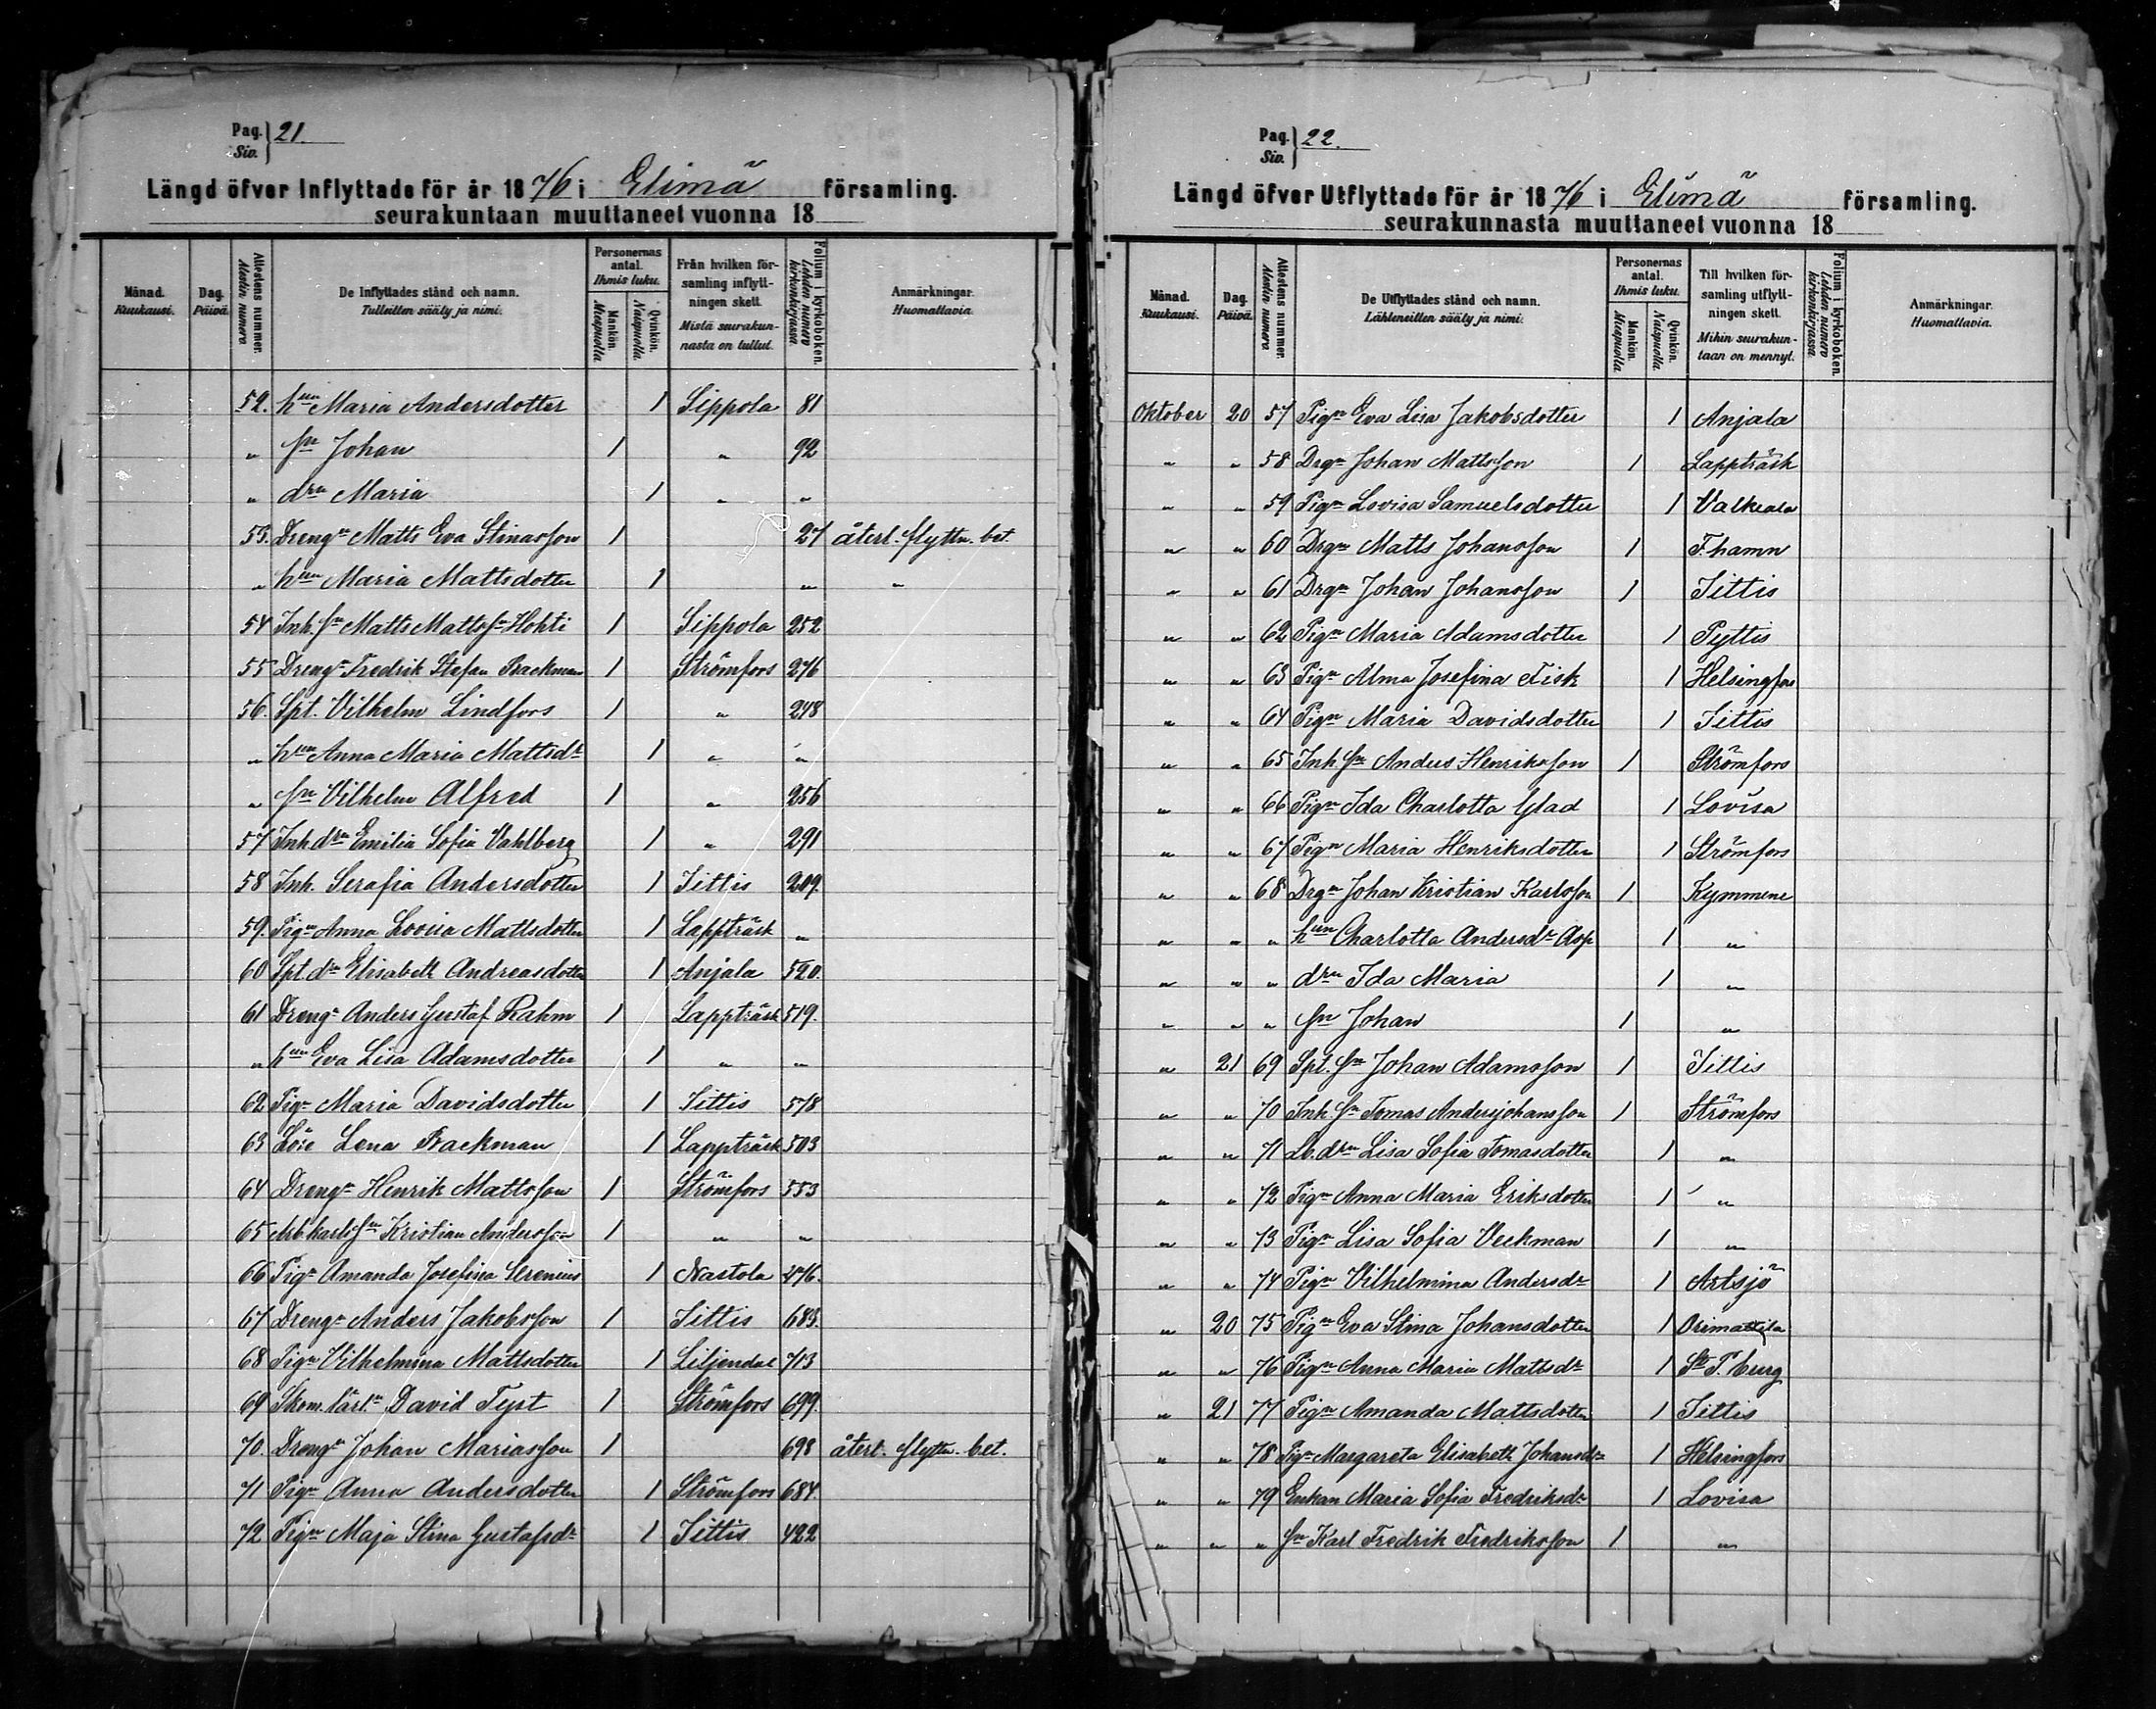 Pag. Siv. } 21.
Längd öfver Inflyttade för år 1876 i Elimä församling.
seurakuntaan muuttaneet vuonna 18
Månad. Kuukausi. | Dag. Päivä. | Attestens nummer. Alestin numero | De Inflyttades stånd och namn. Tulleitten sääty ja nimi. | Personernas antal. Ihmis luku. Mankön. Miespuolia Qvinkön. Naispuolia. | Från hvilken församling inflyttningen skett. Mistä seurakunnasta on tullut. | Folium i kyrkoboken. Lehden numero kirkonkirjassa | Anmärkningar. Huomattavia.
52. hun Maria Andersdotter 1 Sippola 81
" sn Johan 1 " 92
" drn Maria 1 " "
53. Drengn Matts Eva Stinasson 1 27 återl. flyttn. bet.
" hun Maria Mattsdotter 1 " "
54 Inh. sn Matts Mattss. Hohti 1 Sippola 252
55 Drengn Fredrik Stefan Backman 1 Strömfors 276
56. Spt. Vilhelm Lindfors 1 " 248
" hun Anna Maria Mattsdr 1 " "
" sn Vilhelm Alfred 1 " 256
57 Inh. drn Emilia Sofia Vahlberg 1 " 291
58 Inh. Serafia Andersdotter 1 Iittis 209.
59. Pign Anna Lovisa Mattsdotter 1 Lappträsk "
60 Spt. dr Elisabeth Andreasdotter 1 Anjala 520.
61 Drengn Anders Gustaf Rahm 1 Lappträsk 519.
" hun Eva Lisa Adamsdotter 1 " "
62 Pign Maria Davidsdotter 1 Iittis 578
63 Löse Lena Backman 1 Lappträsk 503
64 Drengn Henrik Mattsson 1 Strömfors 553
65 Arb. karls sn Kristian Andersson 1 " "
66 Pign Amanda Josefina Serenius 1 Nastola 476.
67 Drengn Anders Jakobsson 1 Iittis 683.
68 Pign Vilhelmina Mattsdotter 1 Liljendal 713
69 Skom. lärl. David Tyst 1 Strömfors 699.
70. Drengn Johan Mariasson 1 698 återl. flyttn. bet.
71 Pign Anna Andersdotter 1 Strömfors 684.
72 Pign Maja Stina Gustafsdr 1 Iittis 422
Pag. Siv. } 22.
Längd öfver Utflyttade för år 1876 i Elimä församling.
seurakunnasta muuttaneet vuonna 18
Månad. Kuukausi. | Dag. Päivä. | Attestens nummer. Alestin numero | De Utflyttades stånd och namn. Lähteneitten sääty ja nimi. | Personernas antal. Ihmis luku. Mankön. Miespuolia Qvinkön. Naispuolia. | Till hvilken församling utflyttningen skett. Mihin seurakuntaan on mennyt. | Folium i kyrkoboken. Lehden numero kirkonkirjassa. | Anmärkningar. Huomattavia.
Oktober 20 57 Pign Eva Lisa Jakobsdotter 1 Anjala
" " 58 Drgn Johan Mattsson 1 Lappträsk
" " 59 Pign Lovisa Samuelsdotter 1 Valkeala
" " 60 Drgn Matts Johansson 1 F:hamn
" " 61 Drgn Johan Johansson 1 Iittis
" " 62 Pign Maria Adamsdotter 1 Pyttis
" " 63 Pign Alma Josefina Fisk 1 Helsingfors
" " 64 Pign Maria Davidsdotter 1 Iittis
" " 65 Inh. sn Anders Henriksson 1 Strömfors
" " 66 Pign Ida Charlotta Glad 1 Lovisa
" " 67 Pign Maria Henriksdotter 1 Strömfors
" " 68 Drgn Johan Kristian Karlsson 1 Kymmene
" " " hun Charlotta Andersdr Asp 1 "
" " " drn Ida Maria 1 "
" " " sn Johan 1 "
" 21 69 Spt. sn Johan Adamsson 1 Iittis
" " 70 Inh. sn Tomas Andersjohansson 1 Strömfors
" " 71 Lb. drn Lisa Sofia Tomasdotter 1 "
" " 72 Pign Anna Maria Eriksdotter 1 "
" " 73 Pign Lisa Sofia Veckman 1 "
" " 74 Pign Vilhelmina Andersdr 1 Artsjö
" 20 75 Pign Eva Stina Johansdotter 1 Orimattila
" " 76 Pign Anna Maria Mattsdr 1 St P:burg
" 21 77 Pign Amanda Mattsdotter 1 Iittis
" " 78 Pign Margareta Elisabeth Johansdr 1 Helsingfors
" " 79 Enkan Maria Sofia Fredriksdr 1 Lovisa
" " " sn Karl Fredrik Fredriksson 1 "